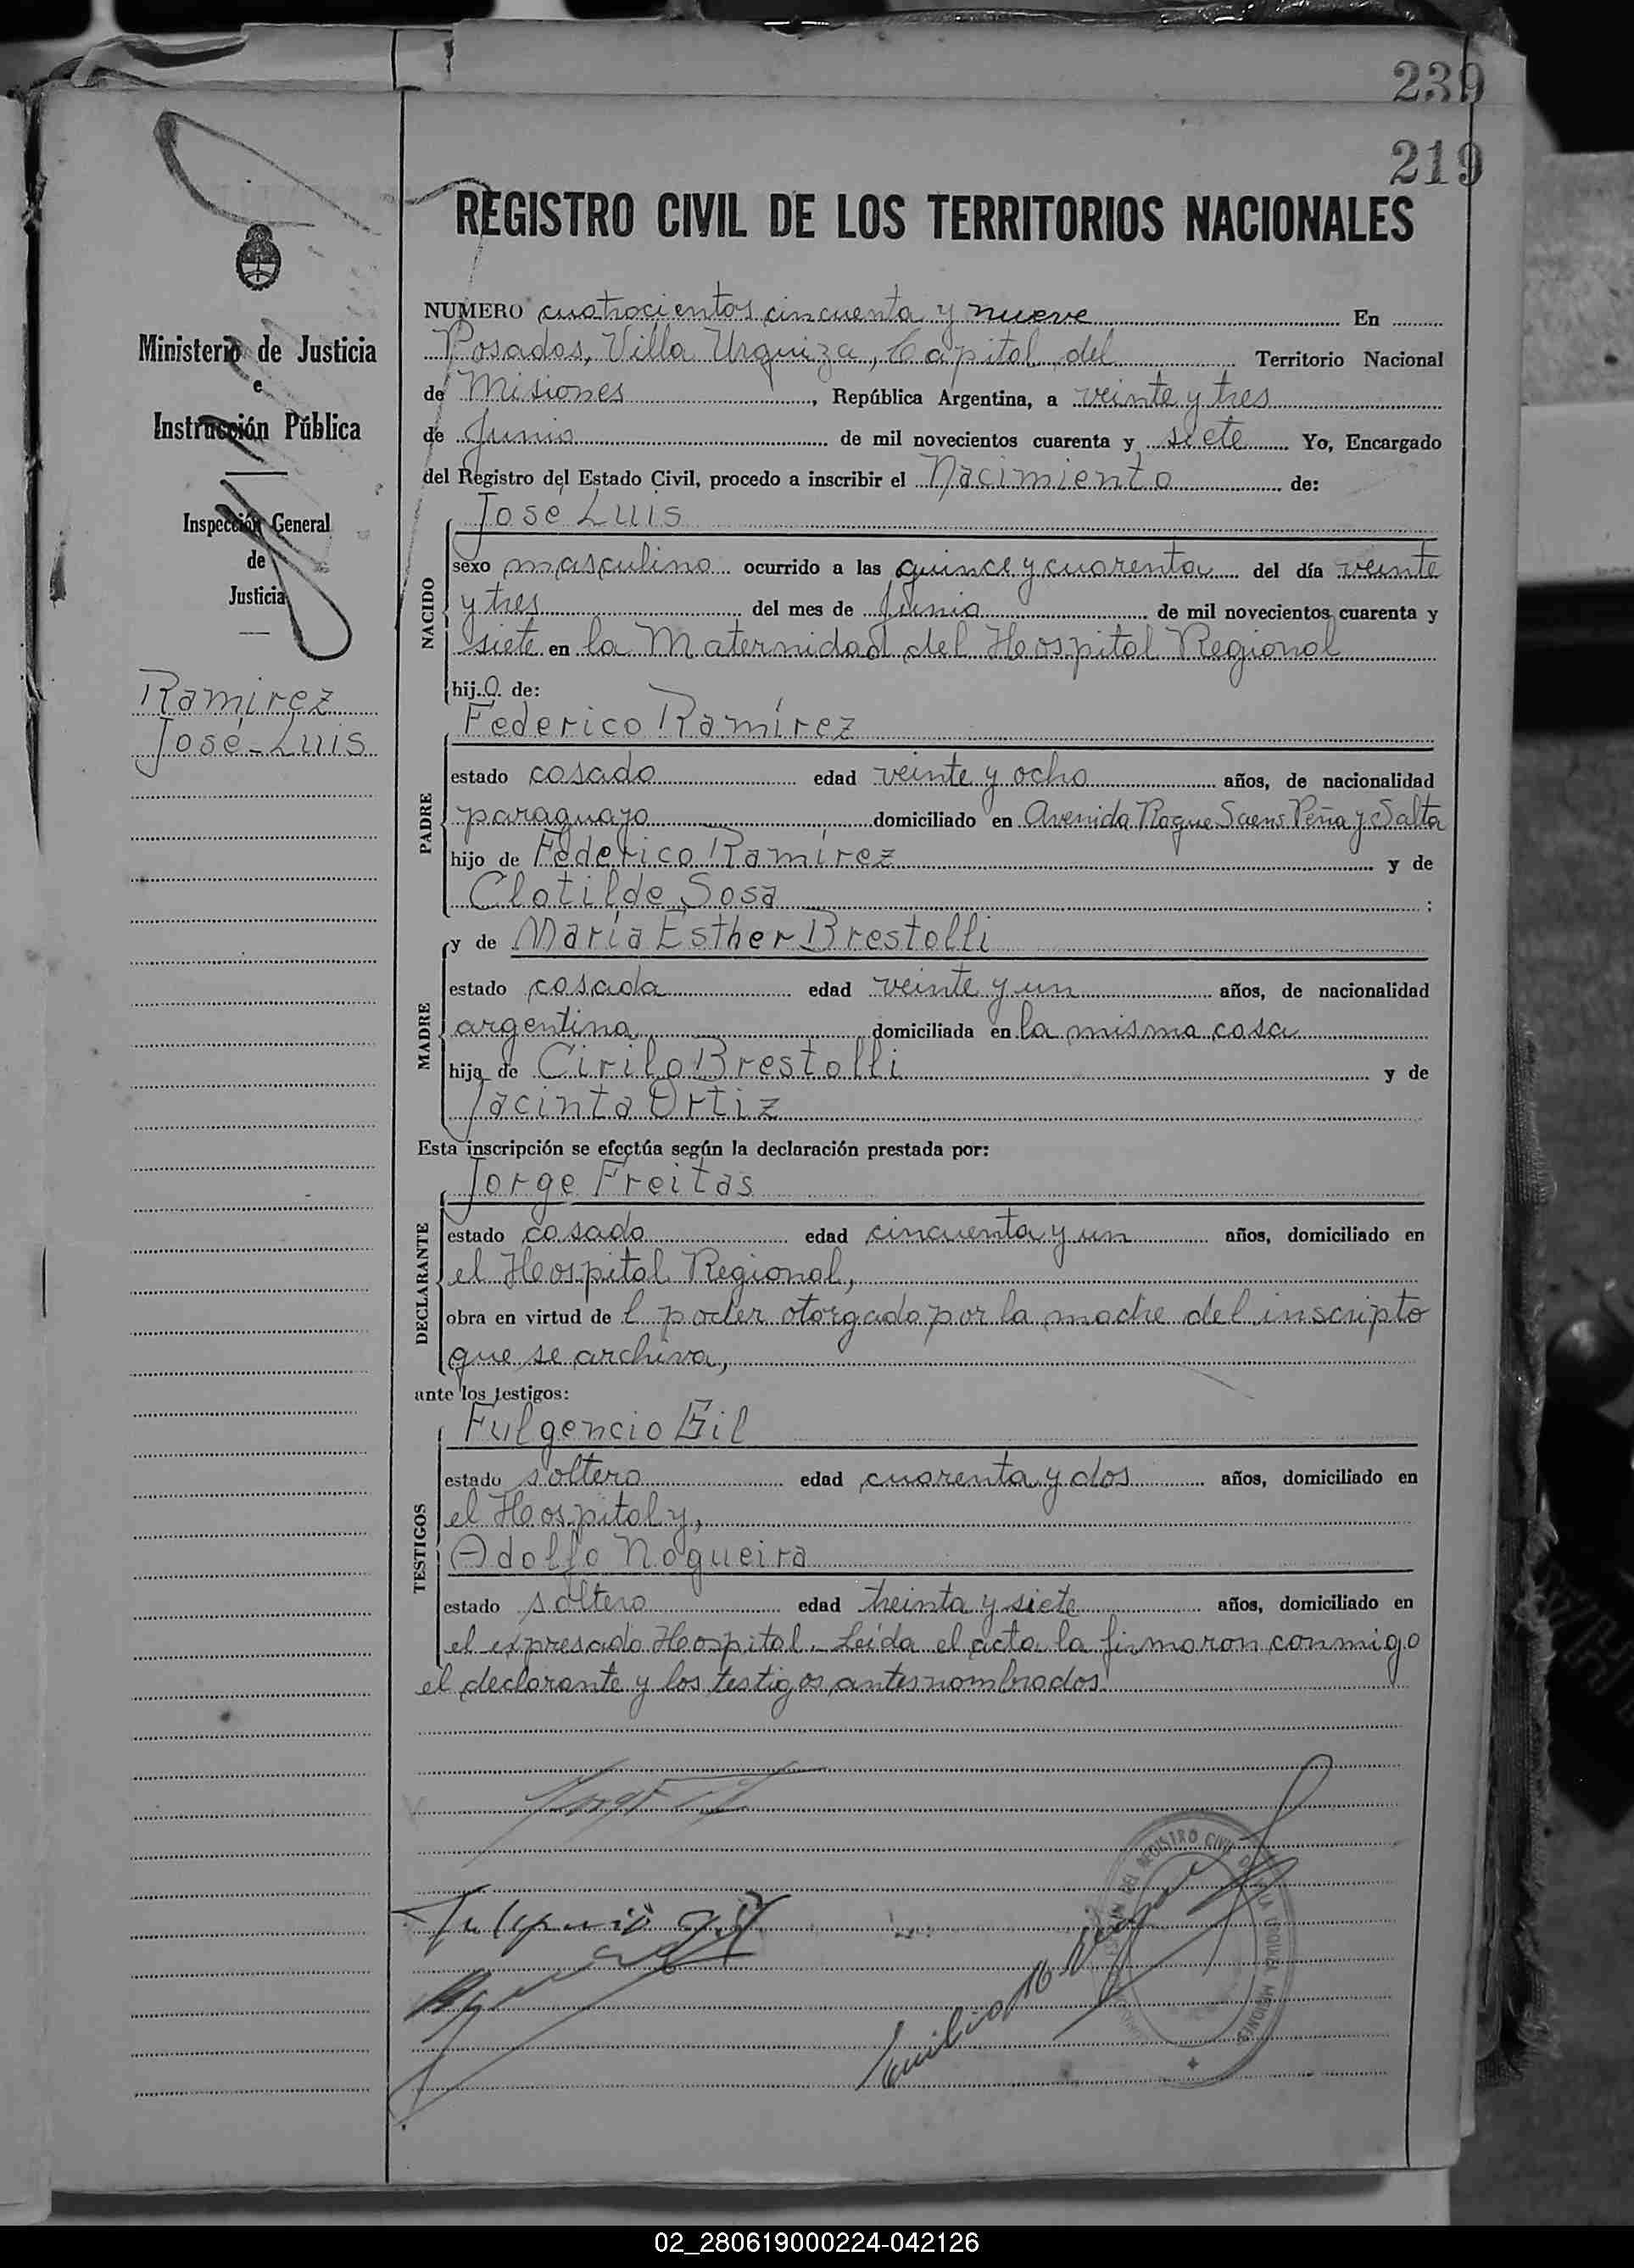 239
219
REGISTRO CIVIL DE LOS TERRITORIOS NACIONALES
Ministerio de Justicia
e
Instrucción Pública
Inspección General
de
Justicia
Ramírez
José-Luis
NUMERO cuatrocientos cincuenta y nueve En
Posadas, Villa Urquiza, Capital del Territorio Nacional
de Misiones, República Argentina, a veinte y tres
de Junio de mil novecientos cuarenta y siete Yo, Encargado
del Registro del Estado Civil, procedo a inscribir el Nacimiento de:
NACIDO
José Luis
sexo masculino ocurrido a las quince y cuarenta del día veinte
y tres del mes de Junio de mil novecientos cuarenta y
siete en la Maternidad del Hospital Regional
hijo de:
PADRE
Federico Ramírez
estado casado edad veinte y ocho años, de nacionalidad
paraguayo domiciliado en Avenida Roque Saens Peña y Salta
hijo de Federico Ramírez y de
Clotilde Sosa ;
MADRE
y de María Esther Brestolli
estado casada edad veinte y un años, de nacionalidad
argentina domiciliada en la misma casa
hija de Cirilo Brestolli y de
Jacinta Ortiz
Esta inscripción se efectúa según la declaración prestada por:
DECLARANTE
Jorge Freitas
estado casado edad cincuenta y un años, domiciliado en
el Hospital Regional,
obra en virtud de l poder otorgado por la madre del inscripto
que se archiva,
ante los testigos:
TESTIGOS
Fulgencio Gil
estado soltero edad cuarenta y dos años, domiciliado en
el Hospital y,
Adolfo Nogueira
estado soltero edad treinta y siete años, domiciliado en
el expresado Hospital. Leída el acta la firmaron conmigo
el declarante y los testigos antes nombrados
Fulgencio Gil
Emilio
REGISTRO CIVIL
MISIONES
02_280619000224-042126